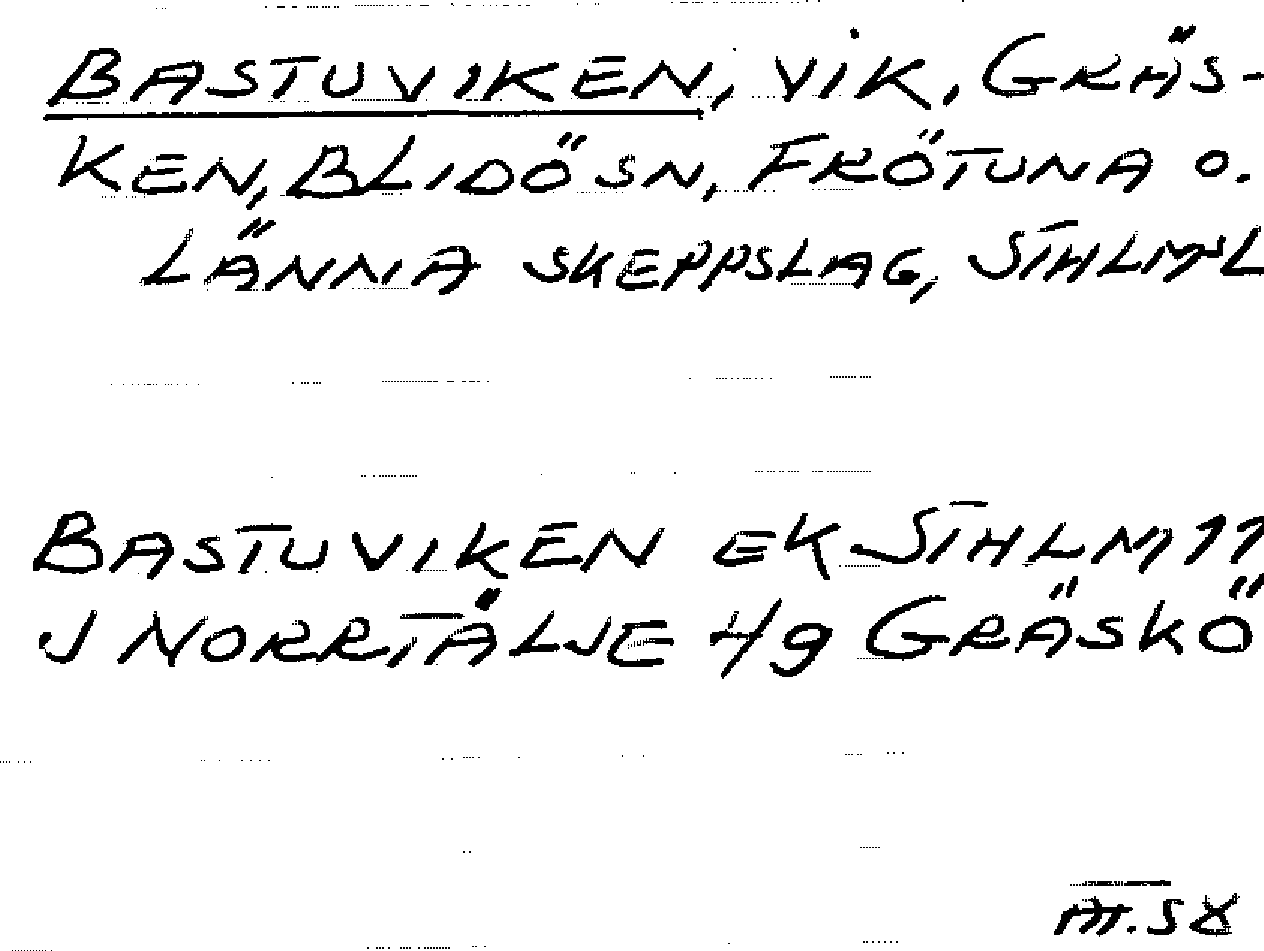 BASTUVIKEN, VIK, GRÄS-
KEN, BLIDÖ SN, FRÖTUNA O.
LÄNNA SKEPPSLAG, STHLMSL
BASTUVIKEN EK STHLM 77
J NORRTÄLJE 4/9 GRÄSKÖ